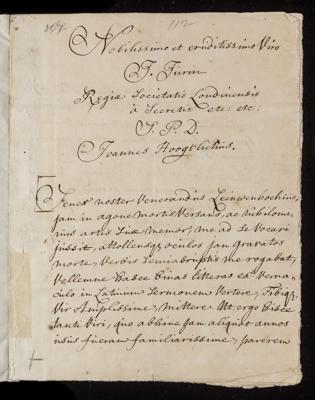 112
Nobilissimo et eruditissimo Viro
J. Jurin
Regiæ Societatis Londinensis
à Secretis etc: etc:
S. P. D.
Joannes Hoogvlietius.
Senex noster Venerandus Leeuwenhockius,
jam in agone mortis Versans, ac nihilomi,
nus artis suæ memor, me ad se Vocari
jussit, attollensq, oculos jam gravatos
morte, Verbis Semiabruptis me rogabat,
Vellemne hasce binas litteras ex Verna,
culo in Latinum Sermonem Vertere, Tibiq,
Vir Amplissime, mittere. Ut ergo hisce
tanti Viri, quo abhinc jam aliquot annos
usus fueram familiarissime, parerem